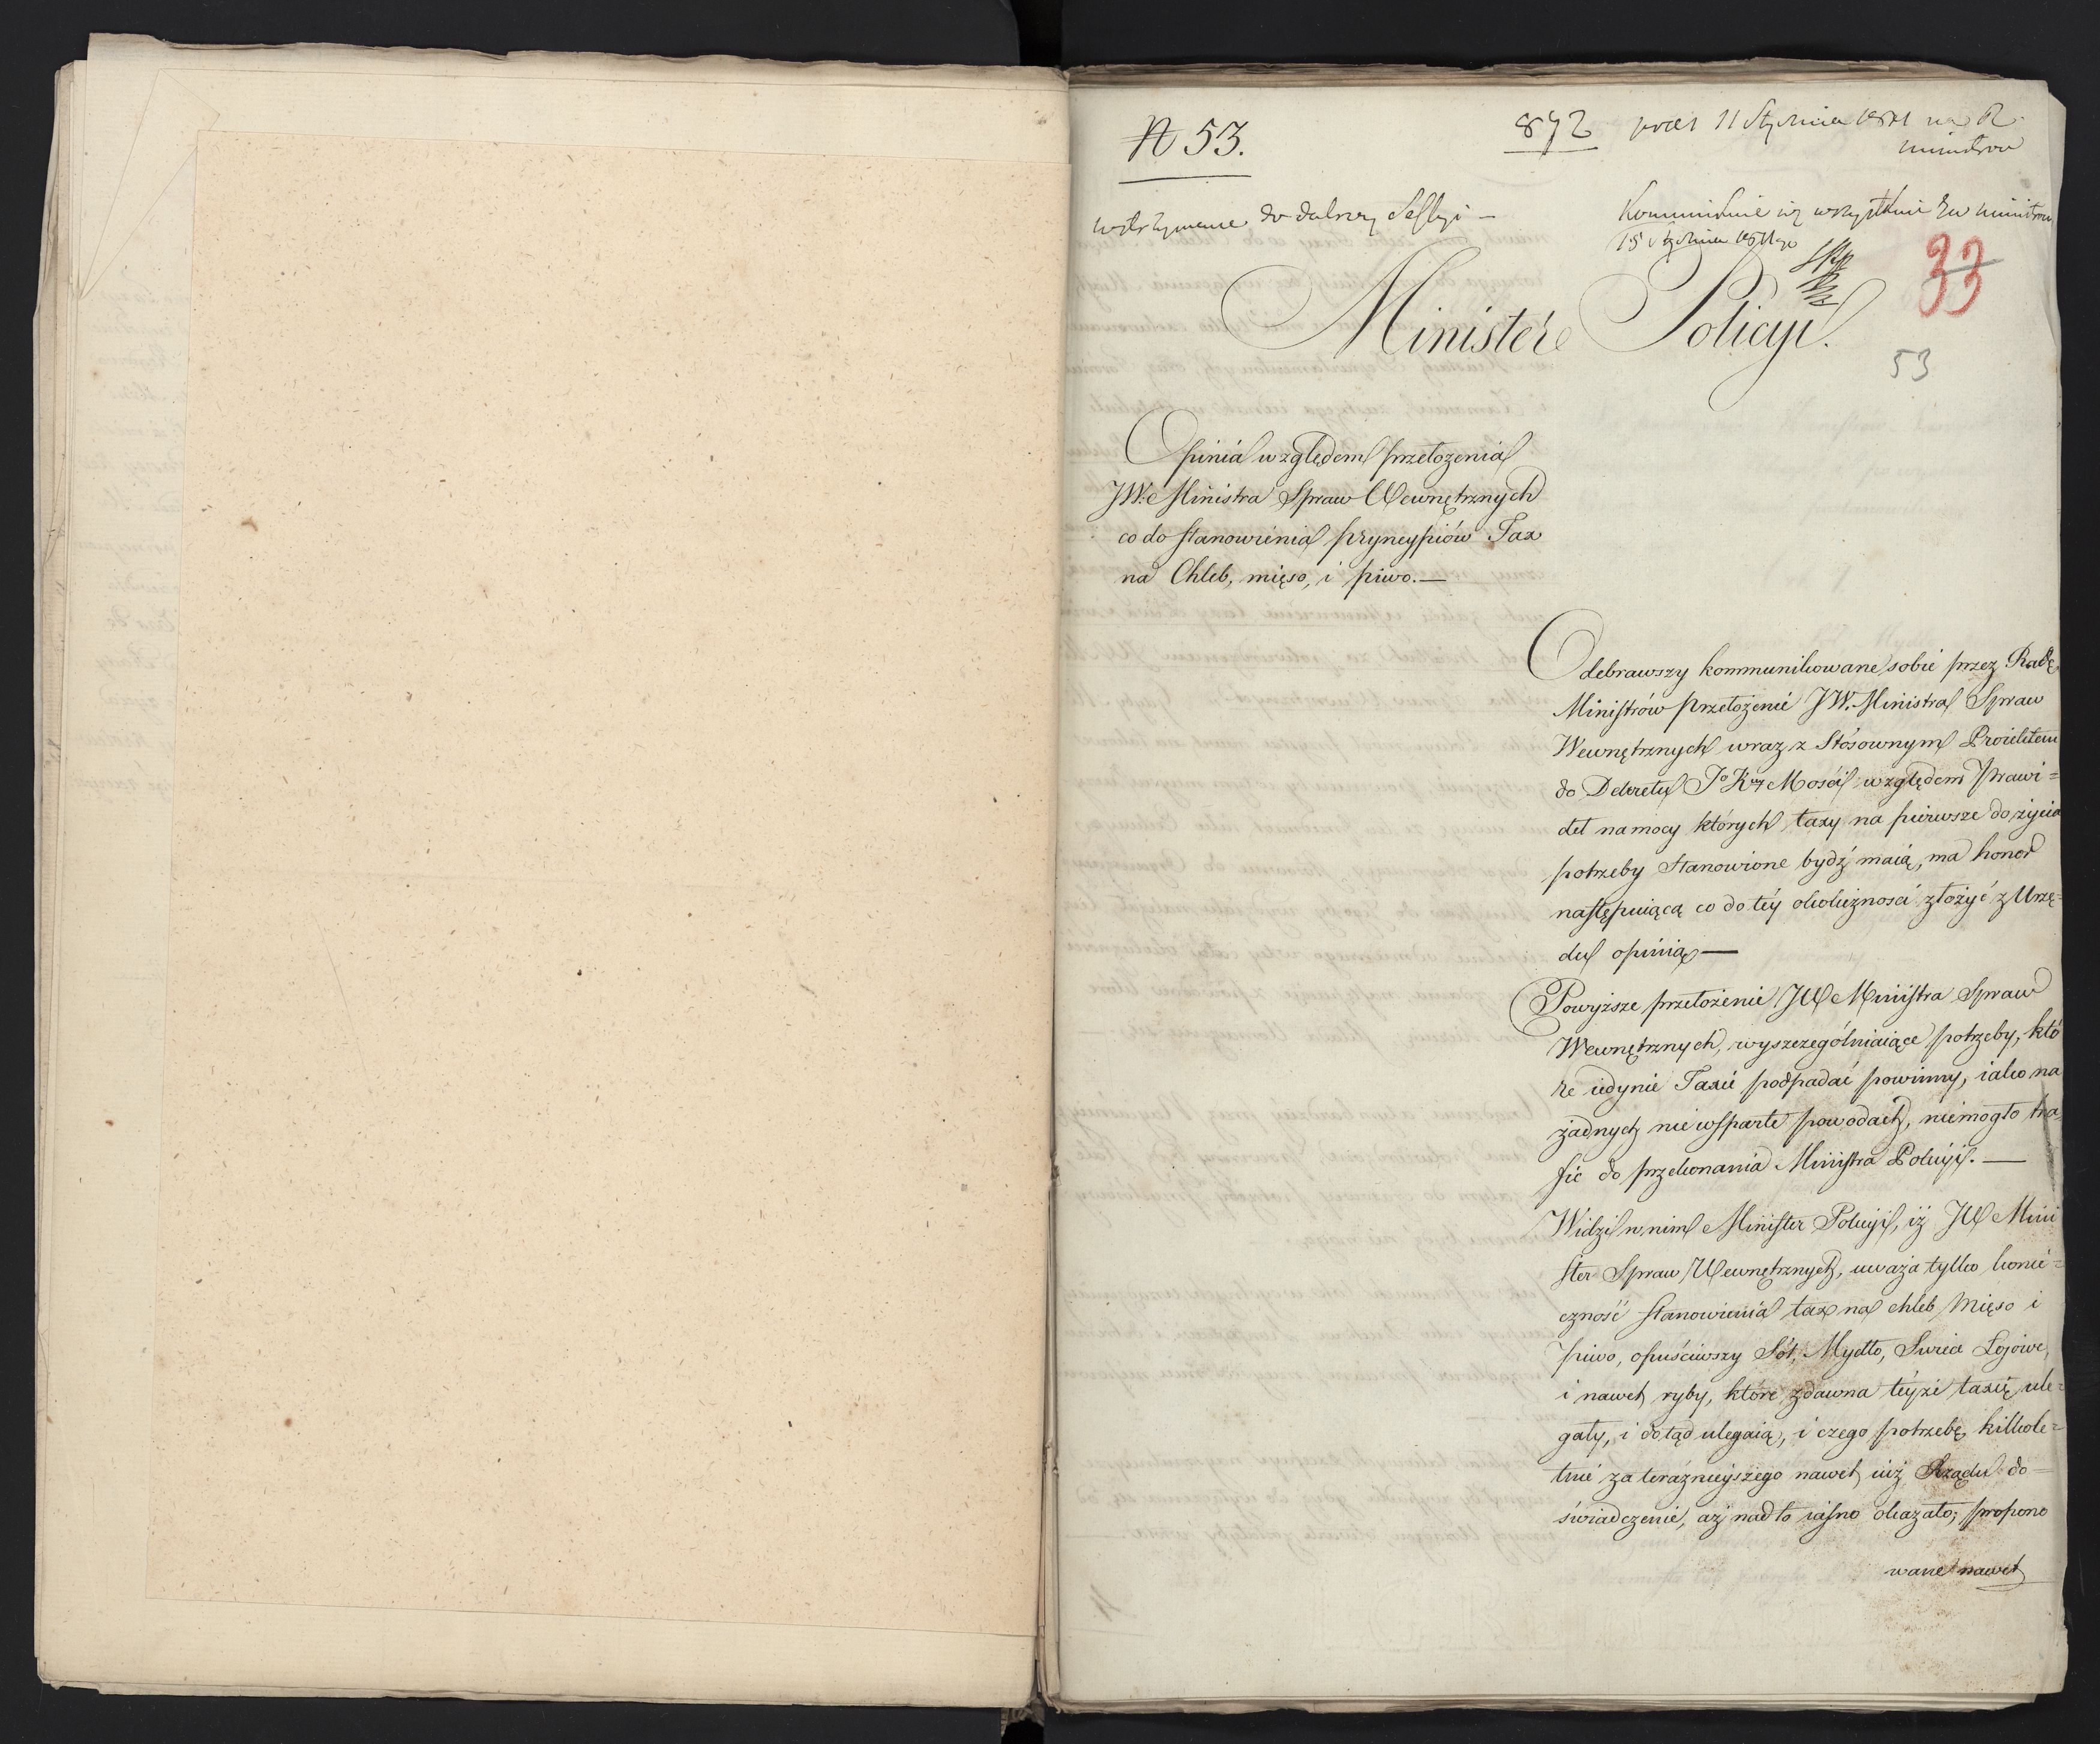 N 53.
892 prez 11 Stycznia 1811 na R.
Ministrow
wstrzymane do dalszey Sessyi —
Kommunikuie się wszystkim Ministrom
15 Stycznia 1811go
33
Minister Policyi.
53
Opinia względem przełożenia
JW. Ministra Spraw Wewnętrznych
co do stanowienia pryncypiów Tax
na Chleb, mięso, i piwo.—
Odebrawszy kommunikowane sobie przez Radę
Ministrów przełożenie JW. Ministra Spraw
Wewnętrznych wraz z Stósownym Proiektem
do Dekretu Jo Kr Mości względem prawi=
deł na mocy których taxy na pierwsze do życia
potrzeby stanowione bydź maią, ma honor
następuiącą co do téy okoliczności złożyć z Urzę=
du opinią —
Powyższe przełożenie JW Ministra Spraw
Wewnętrznych, wyszczególniaiące potrzeby, któ
re iedynie Taxie podpadać powinny, iako na
żadnych nie wsparte powodach, niemogło tra
fić do przekonania Ministra Policyi. —
Widzi w nim Minister Policyi, iż JW Mini
ster Spraw Wewnętrznych, uważa tylko konie=
czność stanowienia tax na chleb mięso i
piwo, opuściwszy Sól, Mydło, Swiece Łojowe,
i nawet ryby, które zdawna téyże taxie ule=
gały, i dotąd ulegaią, i czego potrzebę kilkole=
tnie za teraźnieyszego nawet iuż Rządu do=
świadczenie, aż nadto iasno okazało; propono
wane nawet